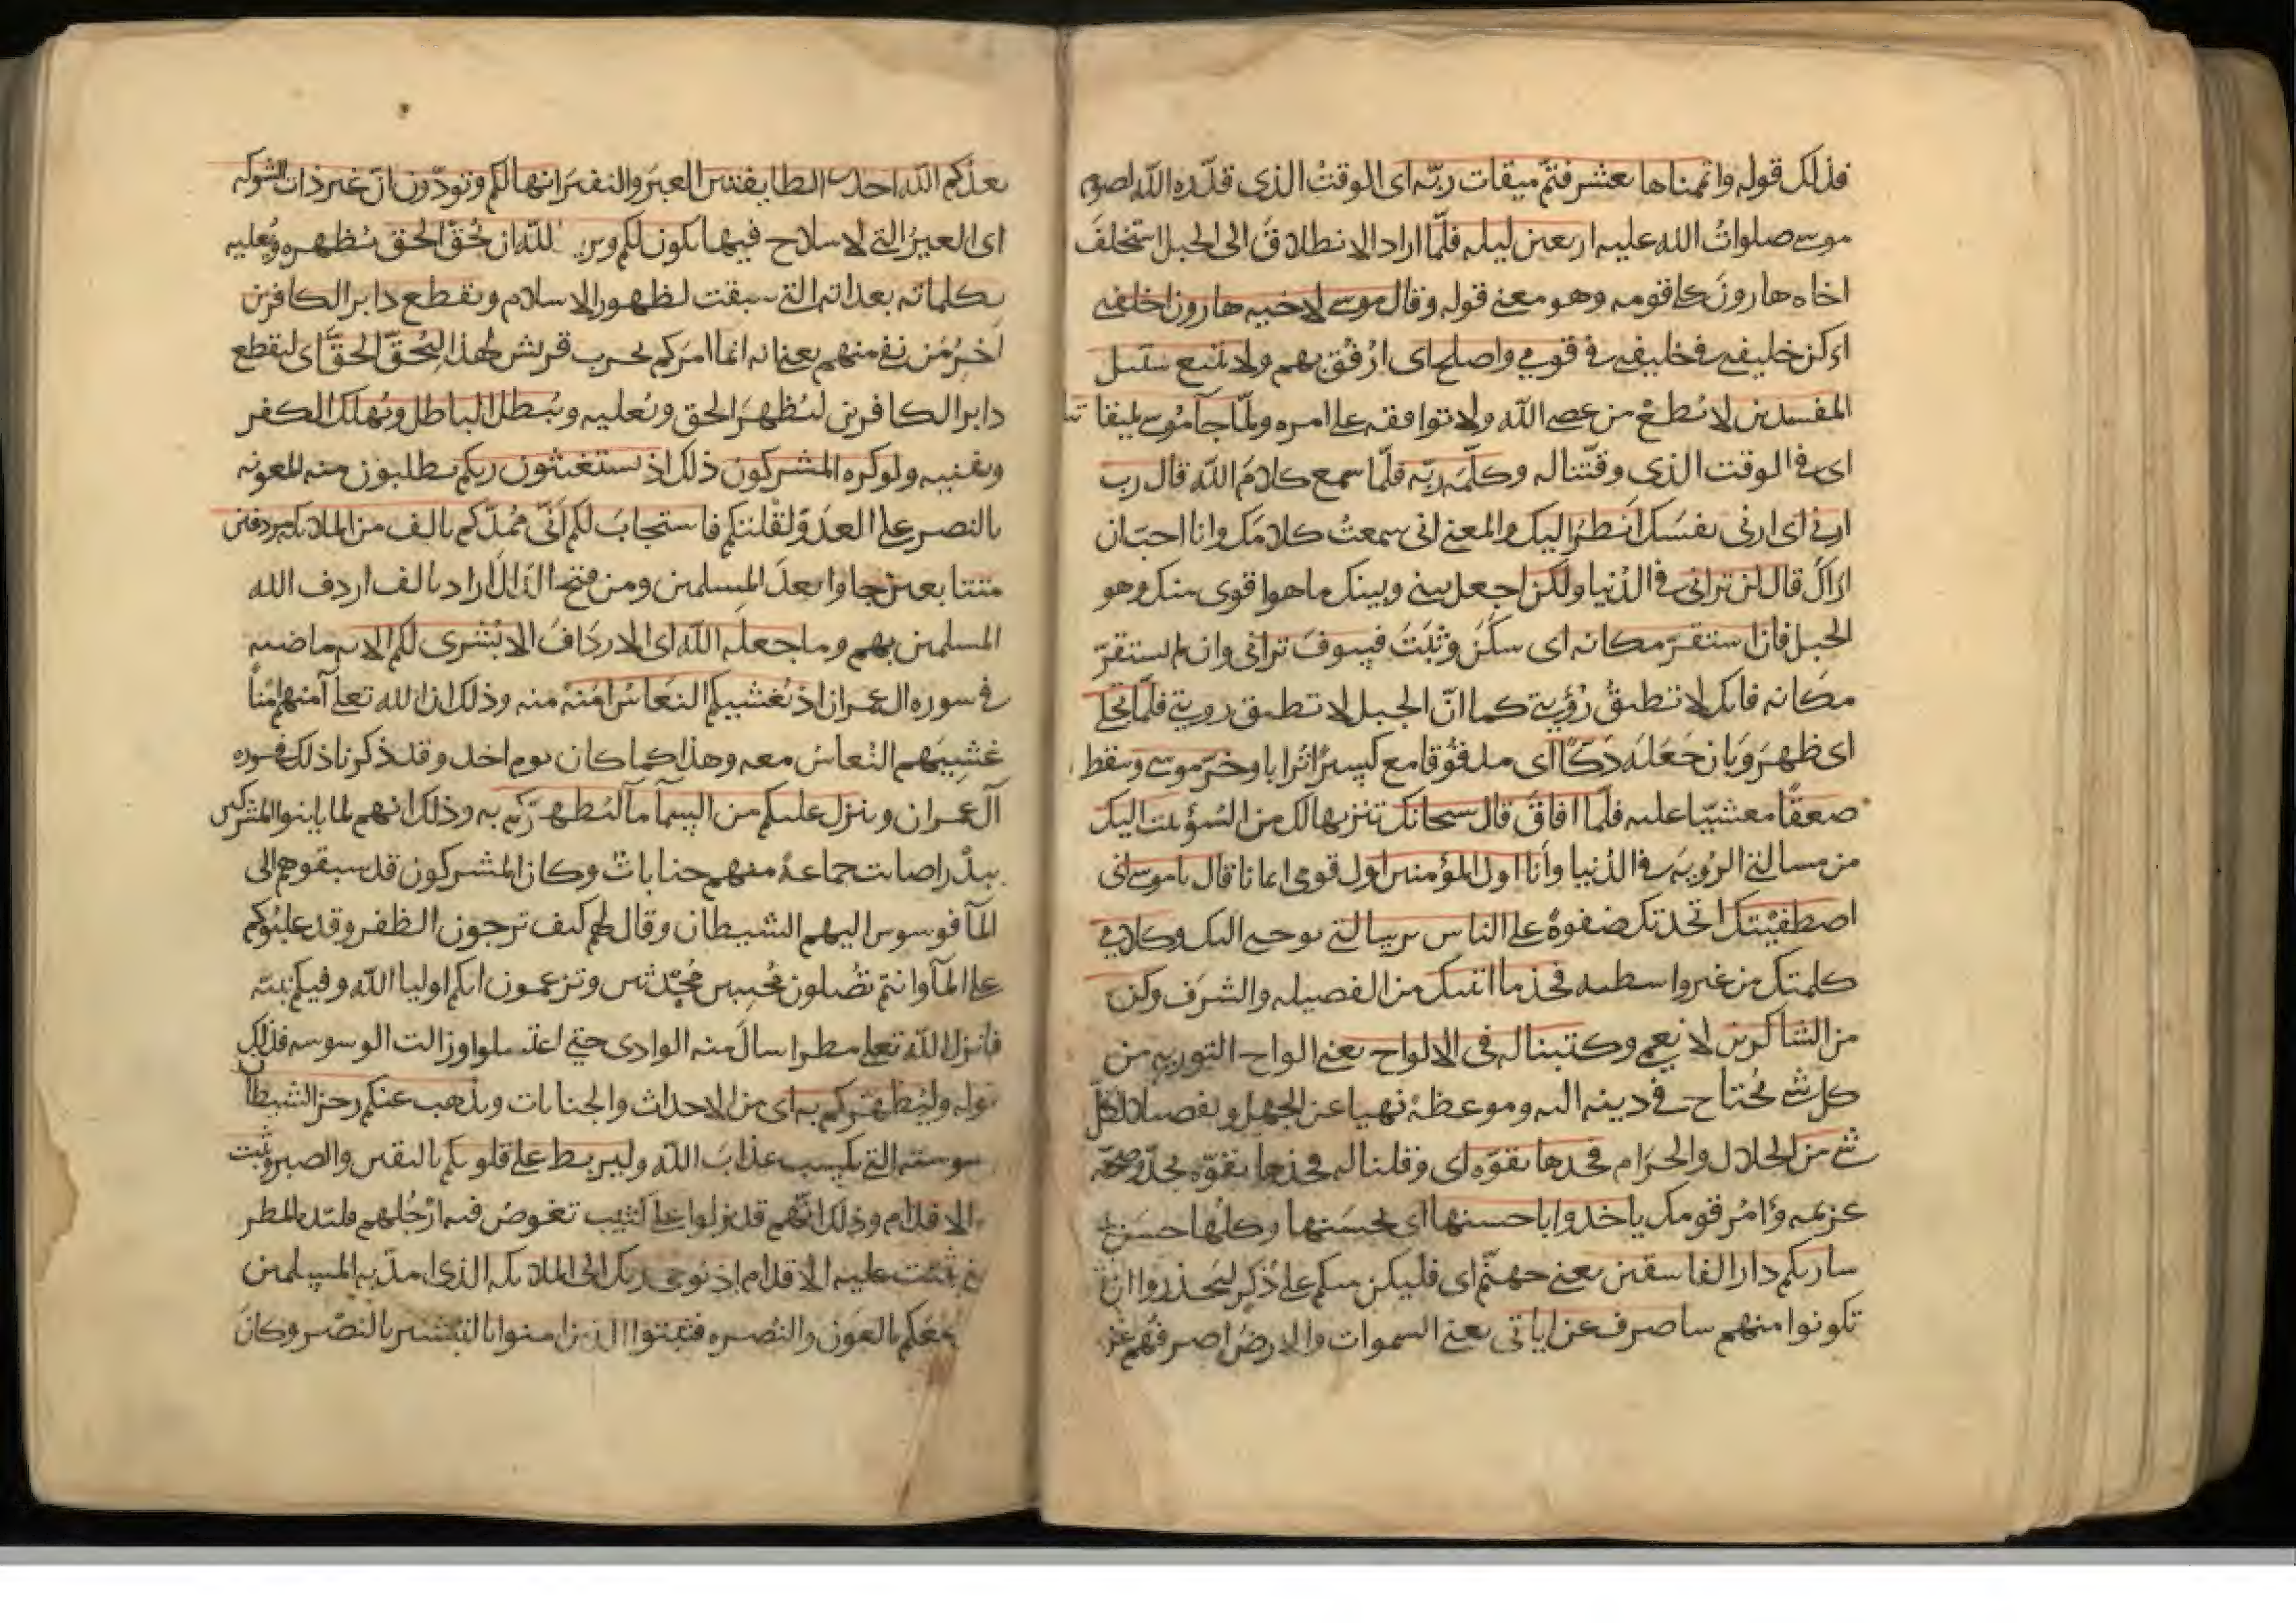 فذلك قوله واتممناها بعشر فتم ميقات ربه اى الوقت الذى قدره الله لصوم
موسى صلوات الله عليه اربعين ليله فلما اراد الانطلاق الى الجبل استخلف
اخاه هارون على قومه وهو معنى قوله وقال موسى لاخيه هارون اخلفنى
اى كن خليفتى فى قومى واصلح اى ارفق بهم ولا تتبع سبيل
المفسدين لا تطع من عصى الله ولا توافقه على امره ولما جآ موسى لميقاتنا
اى فى الوقت الذى وقتنا له وكلمه ربه فلما سمع كلام الله قال رب
ارنى اى ارنى نفسك انظر اليك والمعنى انى سمعت كلامك وانا احب ان
اراك قال لن ترانى فى الدنيا ولكن اجعل بينى وبينك ما هو اقوى منك وهو
الجبل فان استقر مكانه اى سكن وثبت فسوف ترانى وان لم يستقر
مكانه فانك لا تطيق رؤيتى كما ان الجبل لا تطيق رويتى فلما تجلى
اى ظهر وبان جعله دكا اى مدقوقا مع كسر ترابا وخر موسى وسقط
صعقا مغشيا عليه فلما افاق قال سبحانك تنزيها لك من السؤ تبت اليك
من مسالتى الرويه فى الدنيا وانا اول المؤمنين اول قومى ايمانا قال يا موسى انى
اصطفيتك اتخذتك صفوة على الناس برسالتى بوحى اليك وكلامى
كلمتك من غير واسطه فخذ ما اتيتك من الفضيله والشرف وكن
من الشاكرين لانعمى وكتبنا له فى الالواح يعنى الواح التوريه من
كل شى يحتاج فى دينه اليه وموعظة نهيا عن الجهل وتفصيلا لكل
شى من الحلال والحرام فخدها بقوه اى وقلنا له فخذها بقوه بجد وصحه
عزيمه وامر قومك ياخذوا باحسنها اى بحسنها وكلها حسن
ساريكم دار الفاسقين يعنى جهنم اى فليكن منكم على ذكر لتحذروا ان
تكونوا منهم ساصرف عن اياتى يعنى السموات والارض اصرفهم عن
يعدكم الله احدى الطايفتين العير والنفير انها لكم وتودون ان غير ذات الشوكه
اى العير التى لا سلاح فيها تكون لكم ويريد الله ان يحق الحق يظهره ويعليه
بكلماته بعداته التى سبقت لظهور الاسلام ويقطع دابر الكافرين
اخر من بقى منهم يعنى انه انما امركم بحرب قريش لهذا ليحق الحق اى ليقطع
دابر الكافرين ليظهر الحق ويعليه ويبطل الباطل ويهلك الكفر
ويفنيه ولو كره المشركون ذلك اذ تستغيثون ربكم تطلبون منه المعونه
بالنصر على العدو لقلتكم فاستجاب لكم انى ممدكم بالف من الملايكه مردفين
متتابعين جاوا بعد المسلمين ومن فتح الدال اراد بالف اردف الله
المسلمين بهم وما جعله الله اى الارداف الا بشرى لكم الايه ماضيه
فى سوره ال عمران اذ يغشيكم النعاس امنة منه وذلك ان الله تعلى آمنهم امنا
غشيهم النعاس معه وهذا كما كان يوم احد وقد ذكرنا ذلك فى سوره
آل عمران وينزل عليكم من السمآ مآ ليطهركم به وذلك انهم لما باينوا المشركين
ببدر اصابت جماعة منهم جنابات وكان المشركون قد سبقوهم الى
المآ فوسوس اليهم الشيطان وقال لهم كيف ترجون الظفر وقد غلبوكم
على المآ وانتم تصلون مجنبين محدثين وتزعمون انكم اوليا الله وفيكم نبيه
فانزل الله تعلى مطرا سال منه الوادى حتى اغتسلوا وزالت الوسوسه فذلك
قوله وليطهركم به اى من الاحداث والجنابات ويذهب عنكم رجز الشيطان
وسوسته التى تكسب عذاب الله وليربط على قلوبكم باليقين والصبر ويثبت
به الاقدام وذلك انهم قد نزلوا على كثيب تغوص فيه ارجلهم فلبده المطر
حتى ثبتت عليه الاقدام اذ يوحى ربك الى الملايكه الذى امد به المسلمين
انى معكم بالعون والنصره فثبتوا الذين امنوا بالتبشير بالنصر وكان